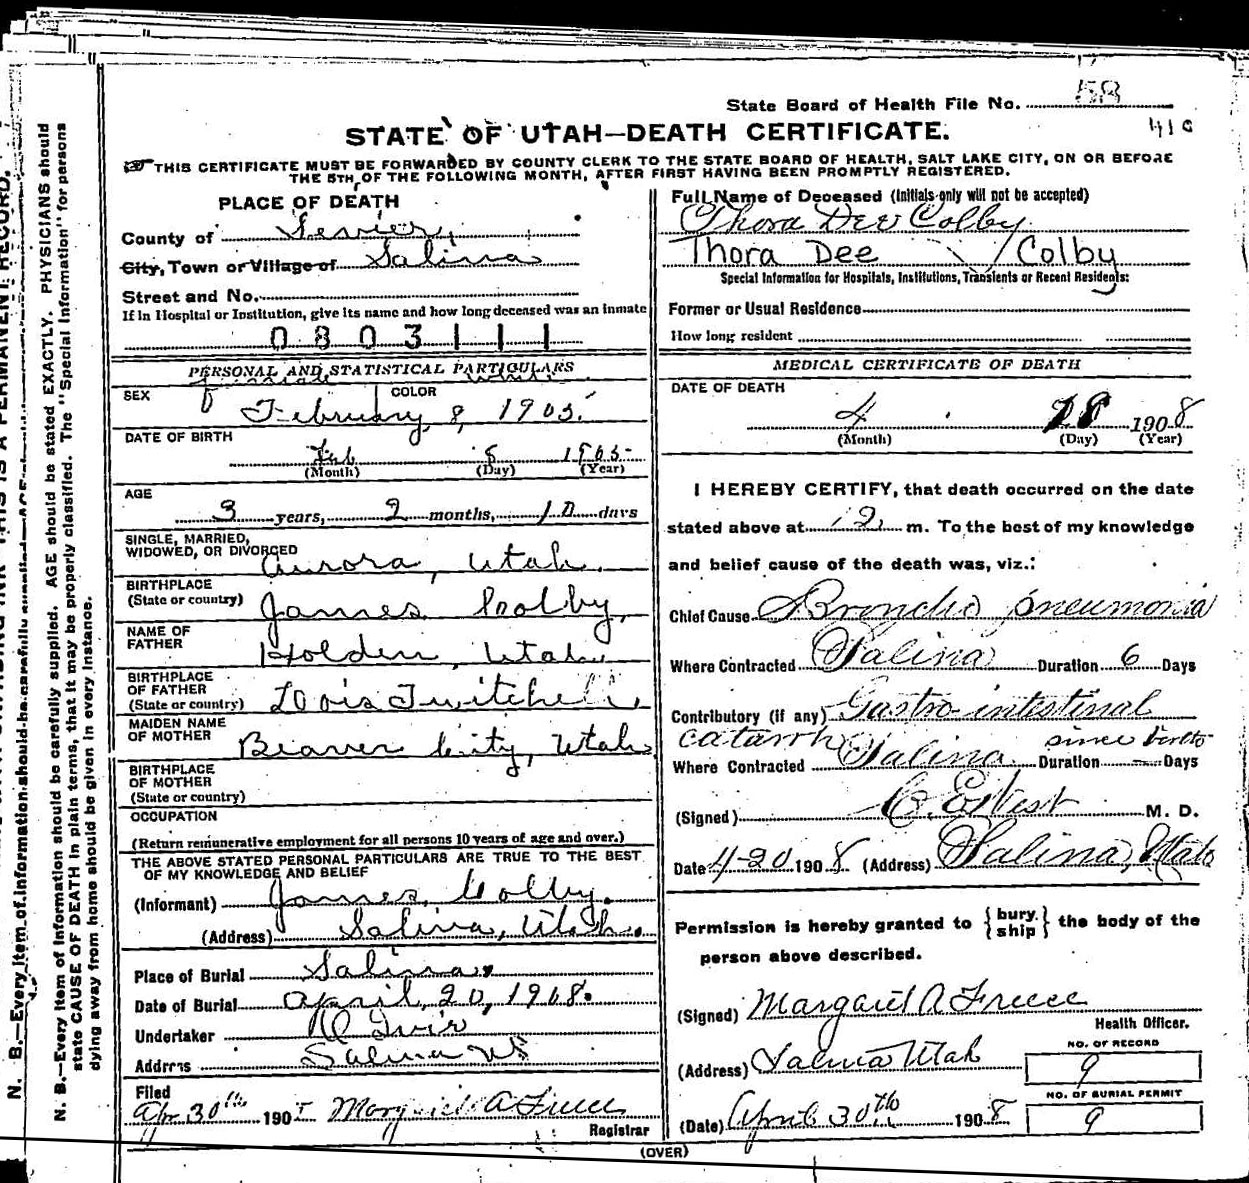 State Board of Health File No. 58
STATE OF UTAH—DEATH CERTIFICATE.
THIS CERTIFICATE MUST BE FORWARDED BY COUNTY CLERK TO THE STATE BOARD OF HEALTH, SALT LAKE CITY, ON OR BEFORE
THE 5TH OF THE FOLLOWING MONTH, AFTER FIRST HAVING BEEN PROMPTLY REGISTERED.
PLACE OF DEATH
County of Sevier,
City, Town or Village of Salina
Street and No.
If in Hospital or Institution, give its name and how long deceased was an inmate
0803111
PERSONAL AND STATISTICAL PARTICULARS
Female White
SEX COLOR
February, 8, 1905.
DATE OF BIRTH
Feb 8 1905
(Month) (Day) (Year)
AGE
3 years, 2 months, 10 days
SINGLE, MARRIED,
WIDOWED, OR DIVORCED
Aurora, Utah.
BIRTHPLACE
(State or country)
James Colby,
NAME OF
FATHER
Holden, Utah,
BIRTHPLACE
OF FATHER
(State or country)
Lois Twitchell,
MAIDEN NAME
OF MOTHER
Beaver City, Utah
BIRTHPLACE
OF MOTHER
(State or country)
OCCUPATION
(Return remunerative employment for all persons 10 years of age and over.)
THE ABOVE STATED PERSONAL PARTICULARS ARE TRUE TO THE BEST
OF MY KNOWLEDGE AND BELIEF
(Informant) James Colby.
(Address) Salina, Utah.
Place of Burial Salina,
Date of Burial April, 20, 1908.
Undertaker
Address Salina
Filed
Apr 30th 190 Margaret A Freece
Registrar
Full Name of Deceased (Initials only will not be accepted)
Thora Dee Colby
Thora Dee / Colby
Special Information for Hospitals, Institutions, Transients or Recent Residents:
Former or Usual Residence
How long resident
MEDICAL CERTIFICATE OF DEATH
DATE OF DEATH
4 18 1908
(Month) (Day) (Year)
I HEREBY CERTIFY, that death occurred on the date
stated above at 12 m. To the best of my knowledge
and belief cause of the death was, viz.:
Chief Cause Broncho pneumonia
Where Contracted Salina Duration 6 Days
Contributory (if any) Gastro-intestinal
catarrh since birth
Where Contracted Salina Duration — Days
(Signed) C. E. West M. D.
Date 4-20 1908 (Address) Salina, Utah
Permission is hereby granted to {bury ship} the body of the
person above described.
(Signed) Margaret A Freece
Health Officer.
(Address) Salina Utah
NO. OF RECORD
9
NO. OF BURIAL PERMIT
9
(Date) April 30th 1908
(OVER)
N. B.—Every item of information should be carefully supplied. AGE should be stated EXACTLY. PHYSICIANS should
state CAUSE OF DEATH in plain terms, that it may be properly classified. The "Special Information" for persons
dying away from home should be given in every instance.